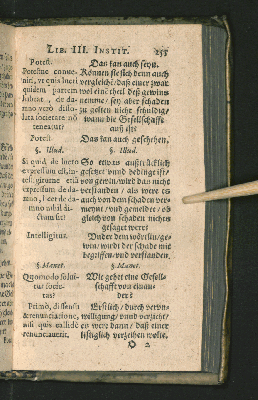 LIB. III. INSTIT. 255
Potest. Das kan auch seyn.
Potestne conve- Können sie sich denn auch
niri, ut quis lucri vergleichē / daß einer zwar
quidem partem wol eine theil deß gewins
habeat, de da- nemme / sey aber schaden
mno verò disso- zu gelten nichts schuldig /
luta societate nō wann die Gesellschaffte
teneatur? auß ist?
Potest. Das kan auch geschehen.
§. Illud. §. Illud.
Si quid de lucro So etwas außtrücklich
expressum est, in- gesetzt unnd bedingt ist /
telligiturne etiā von gewin / wird das nicht
expressum de da- verstanden / als were es
mno, licet de da- auch von dem schaden ver-
mno nihil di- meynt / und gemeldet / ob
ctum sit? gleich von schaden nichts
gesaget were?
Intelligitur. Under dem wörtlin / ge-
win / wurdt der schade mit
begriffen / und verstanden.
§ Manet. §. Manet.
Quomodo solui- Wie gehet eine Gesell-
tur socie- schafft von einan-
tas? der?
Primò, dissensu Erstlich / durch verwi-
& renunciatione, willigung / unnd verzicht /
nisi quis callidè es were dann / daß einer
renunciaverit. listiglich verzeihen wolte.
O 2